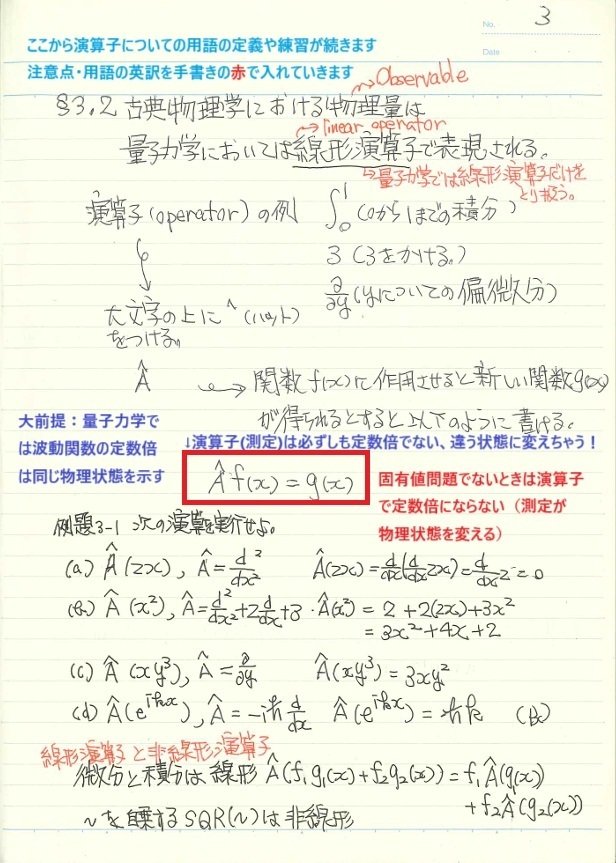 No. 3
Date
ここから演算子についての用語の定義や練習が続きます
注意点・用語の英訳を手書きの赤で入れていきます
→Observable
§3.2 古典物理学における物理量は
→linear operator
量子力学においては線形演算子で表現される。
→量子力学では線形演算子だけを
とり扱う。
演算子(operator)の例 ∫₀¹ (0から1までの積分)
3 (3をかける。)
∂/∂y (yについての偏微分)
大文字の上に ^ (ハット)
をつける。
Â → 関数 f(x)に作用させると新しい関数g(x)
が得られるとすると以下のように書ける。
大前提：量子力学で
は波動関数の定数倍
は同じ物理状態を示す
↓演算子(測定)は必ずしも定数倍でない、違う状態に変えちゃう！
Â f(x) = g(x)
固有値問題でないときは演算子
で定数倍にならない（測定が
物理状態を変える）
例題3-1 次の演算を実行せよ。
(a) Â(2x), Â = d²/dx² Â(2x) = d/dx(d/dx 2x) = d/dx 2 = 0
(b) Â(x²), Â = d²/dx² + 2 d/dx + 3 · Â(x²) = 2 + 2(2x) + 3x²
= 3x² + 4x + 2
(c) Â(xy³), Â = ∂/∂y Â(xy³) = 3xy²
(d) Â(e^{ikx}), Â = -iħ d/dx Â(e^{ikx}) = ħk
線形演算子と非線形演算子
微分と積分は線形 Â(f₁g₁(x) + f₂g₂(x)) = f₁Â(g₁(x))
+ f₂Â(g₂(x))
〜を自乗する SQR(〜)は非線形